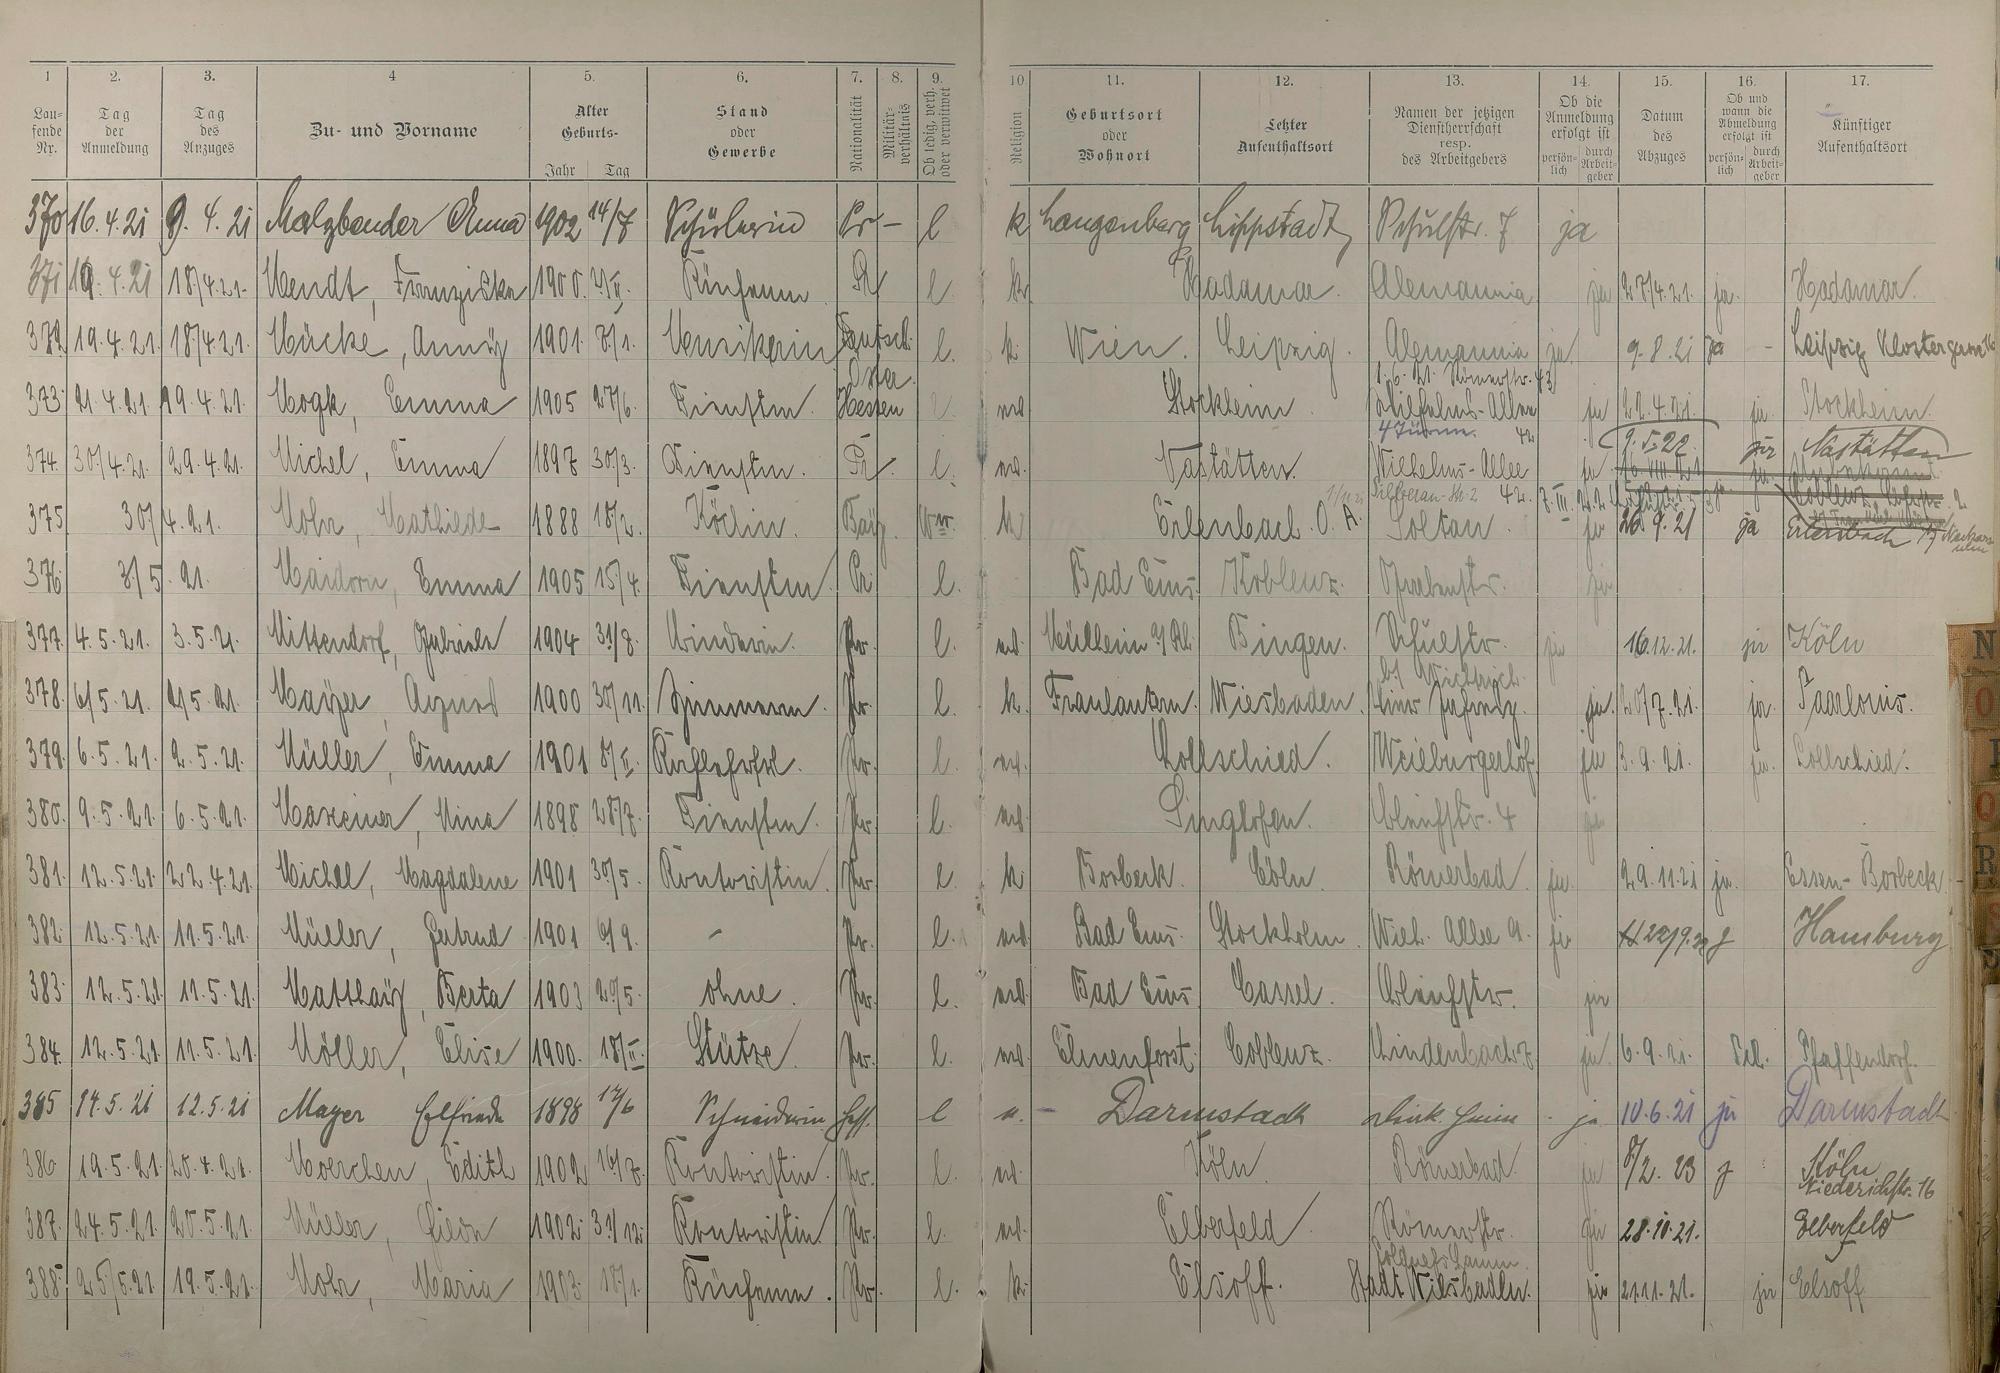 1 2. 3. 4 5. 6. 7. 8. 9. 10 11. 12. 13. 14. 15. 16. 17.
Lau-
fende
Nr.
Tag
der
Anmeldung
Tag
des
Anzuges
Zu- und Vorname
Alter
Geburts-
Jahr Tag
Stand
oder
Gewerbe
Nationalität
Militär-
verhältnis
Ob ledig, verh.
oder verwitwet
Religion
Geburtsort
oder
Wohnort
Letzter
Aufenthaltsort
Namen der jetzigen
Dienstherrschaft
resp.
des Arbeitgebers
Ob die
Anmeldung
erfolgt ist
persön-
lich
durch
Arbeit-
geber
Datum
des
Abzuges
Ob und
wann die
Abmeldung
erfolgt ist
persön-
lich
durch
Arbeit-
geber
Künftiger
Aufenthaltsort
370 16.4.21 9.4.21 Malzbender Anna 1902 14/7 Schülerin Pr – l k Langenberg Lippstadt Schulstr. 7 ja
371 19.4.21 18/4.21. Mendt, Franziska 1900. Pr l. k. Hadamar. Alemannia ja 27/4.21. ja. Hadamar.
372 19.4.21. 18/4.21. Mücke, Anny 1901. 7/1. Musikerin Deutsch. Öster. l. k. Wien. Leipzig. Alemannia ja. 9.8.21 ja – Leipzig
1.6.21. Römerstr. 43
373. 21.4.21. 19.4.21. Mogk, Emma 1905 27/6. Dienstm. Hessen ev. Stockheim. Wilhelms-Allee ja 22.4.21. ja. Stockheim.
4 Türme. 42
374. 30/4.21. 29.4.21. Michel, Emma 1897 30/3. Dienstm. Pr. l. ev. Nastätten. Wilhelms-Allee 42. ja 9.5.22 ja Nastätten
375. 30/4.21. Mohr, Mathilde 1888 18/2. Köchin. Bay. Ww. k. Erlenbach. O. A. Soltau. ja 26.9.21 ja Erlenbach
376. 3/5.21. Maidorn, Emma 1905 15/4. Dienstm. Pr l. Bad Ems. Koblenz. Grabenstr. ja
377. 4.5.21. 3.5.21. Mittendorf, Gabriele 1904 31/8. Pr. l. ev. Mülheim a/Rh. Bingen. Schulstr. ja 16.12.21. ja Köln
378. 6/5.21. 2/5.21. Mayer, Agnes 1900 30/11. Pr. l. k. Fraulautern. Wiesbaden. ja. 20/7.21. ja. Saarlouis.
379. 6.5.21. 2.5.21. Müller, Emma 1901 8/II. Pr. l. ev. Lollschied. Weilburgerhof. ja 3.9.21. ja. Lollschied.
380. 9.5.21. 6.5.21. Maxeiner, Mina 1898 28/7. Dienstm. Pr. l. ev. Singhofen. Bleichstr. 4 ja
381. 12.5.21. 22.4.21. Michel, Magdalene 1901 30/5. Kontoristin. Pr. l. k. Borbeck. Cöln. Römerbad. ja. 29.11.21 ja. Essen-Borbeck
382. 12.5.21. 11.5.21. Müller, Gertrud 1901 6/9. – Pr. l. ev. Bad Ems. Stockholm. Wilh. Allee 9. ja 22/9.22 j Hamburg
383. 12.5.21. 11.5.21. Matthäy, Berta 1903 29/5. ohne. Pr. l. ev. Bad Ems Cassel. Bleichstr. ja
384. 12.5.21. 11.5.21. Möller, Elise 1900. 18/II. Stütze. Pr. l. ev. Elmenhorst. Coblenz. Lindenbach 7. ja. 6.9.21. Pfaffendorf.
385 14.5.21 12.5.21 Mayer Elfriede 1898 12/6 Schneiderin Hess. l Darmstadt ja 10.6.21 ja Darmstadt
386 19.5.21. 20.4.21. Moerchen, Edith 1902 16/7. Kontoristin. Pr. l. ev. Köln. Römerbad. ja 8/2.23 j Köln
Niederichstr. 16
387. 24.5.21. 20.5.21. Müller, 1902. 31/12. Kontoristin. Pr. l. ev. Elberfeld. Römerstr. ja 28.10.21. Elberfeld
388. 25/5.21. 19.5.21. Mohr, Maria 1903. 18/1. Pr. l. k. Elsoff. Stadt Wiesbaden. ja 21.11.21. ja Elsoff
N
O
P
Q
R
S